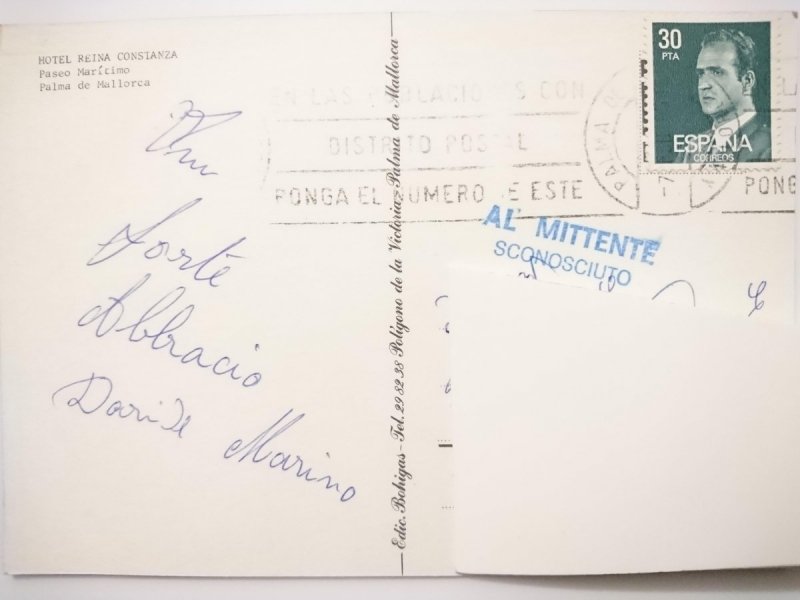 HOTEL REINA CONSTANZA
Paseo Marítimo
Palma de Mallorca
Un
Forte
Abbracio
Davide Marino
Edic. Bohigas - Tel. 29 82 38 Polígono de la Victoria - Palma de Mallorca
EN LAS POBLACIONES CON
DISTRITO POSTAL
PONGA EL NUMERO DE ESTE
PALMA
PONG
30
PTA
ESPAÑA
CORREOS
AL MITTENTE
SCONOSCIUTO